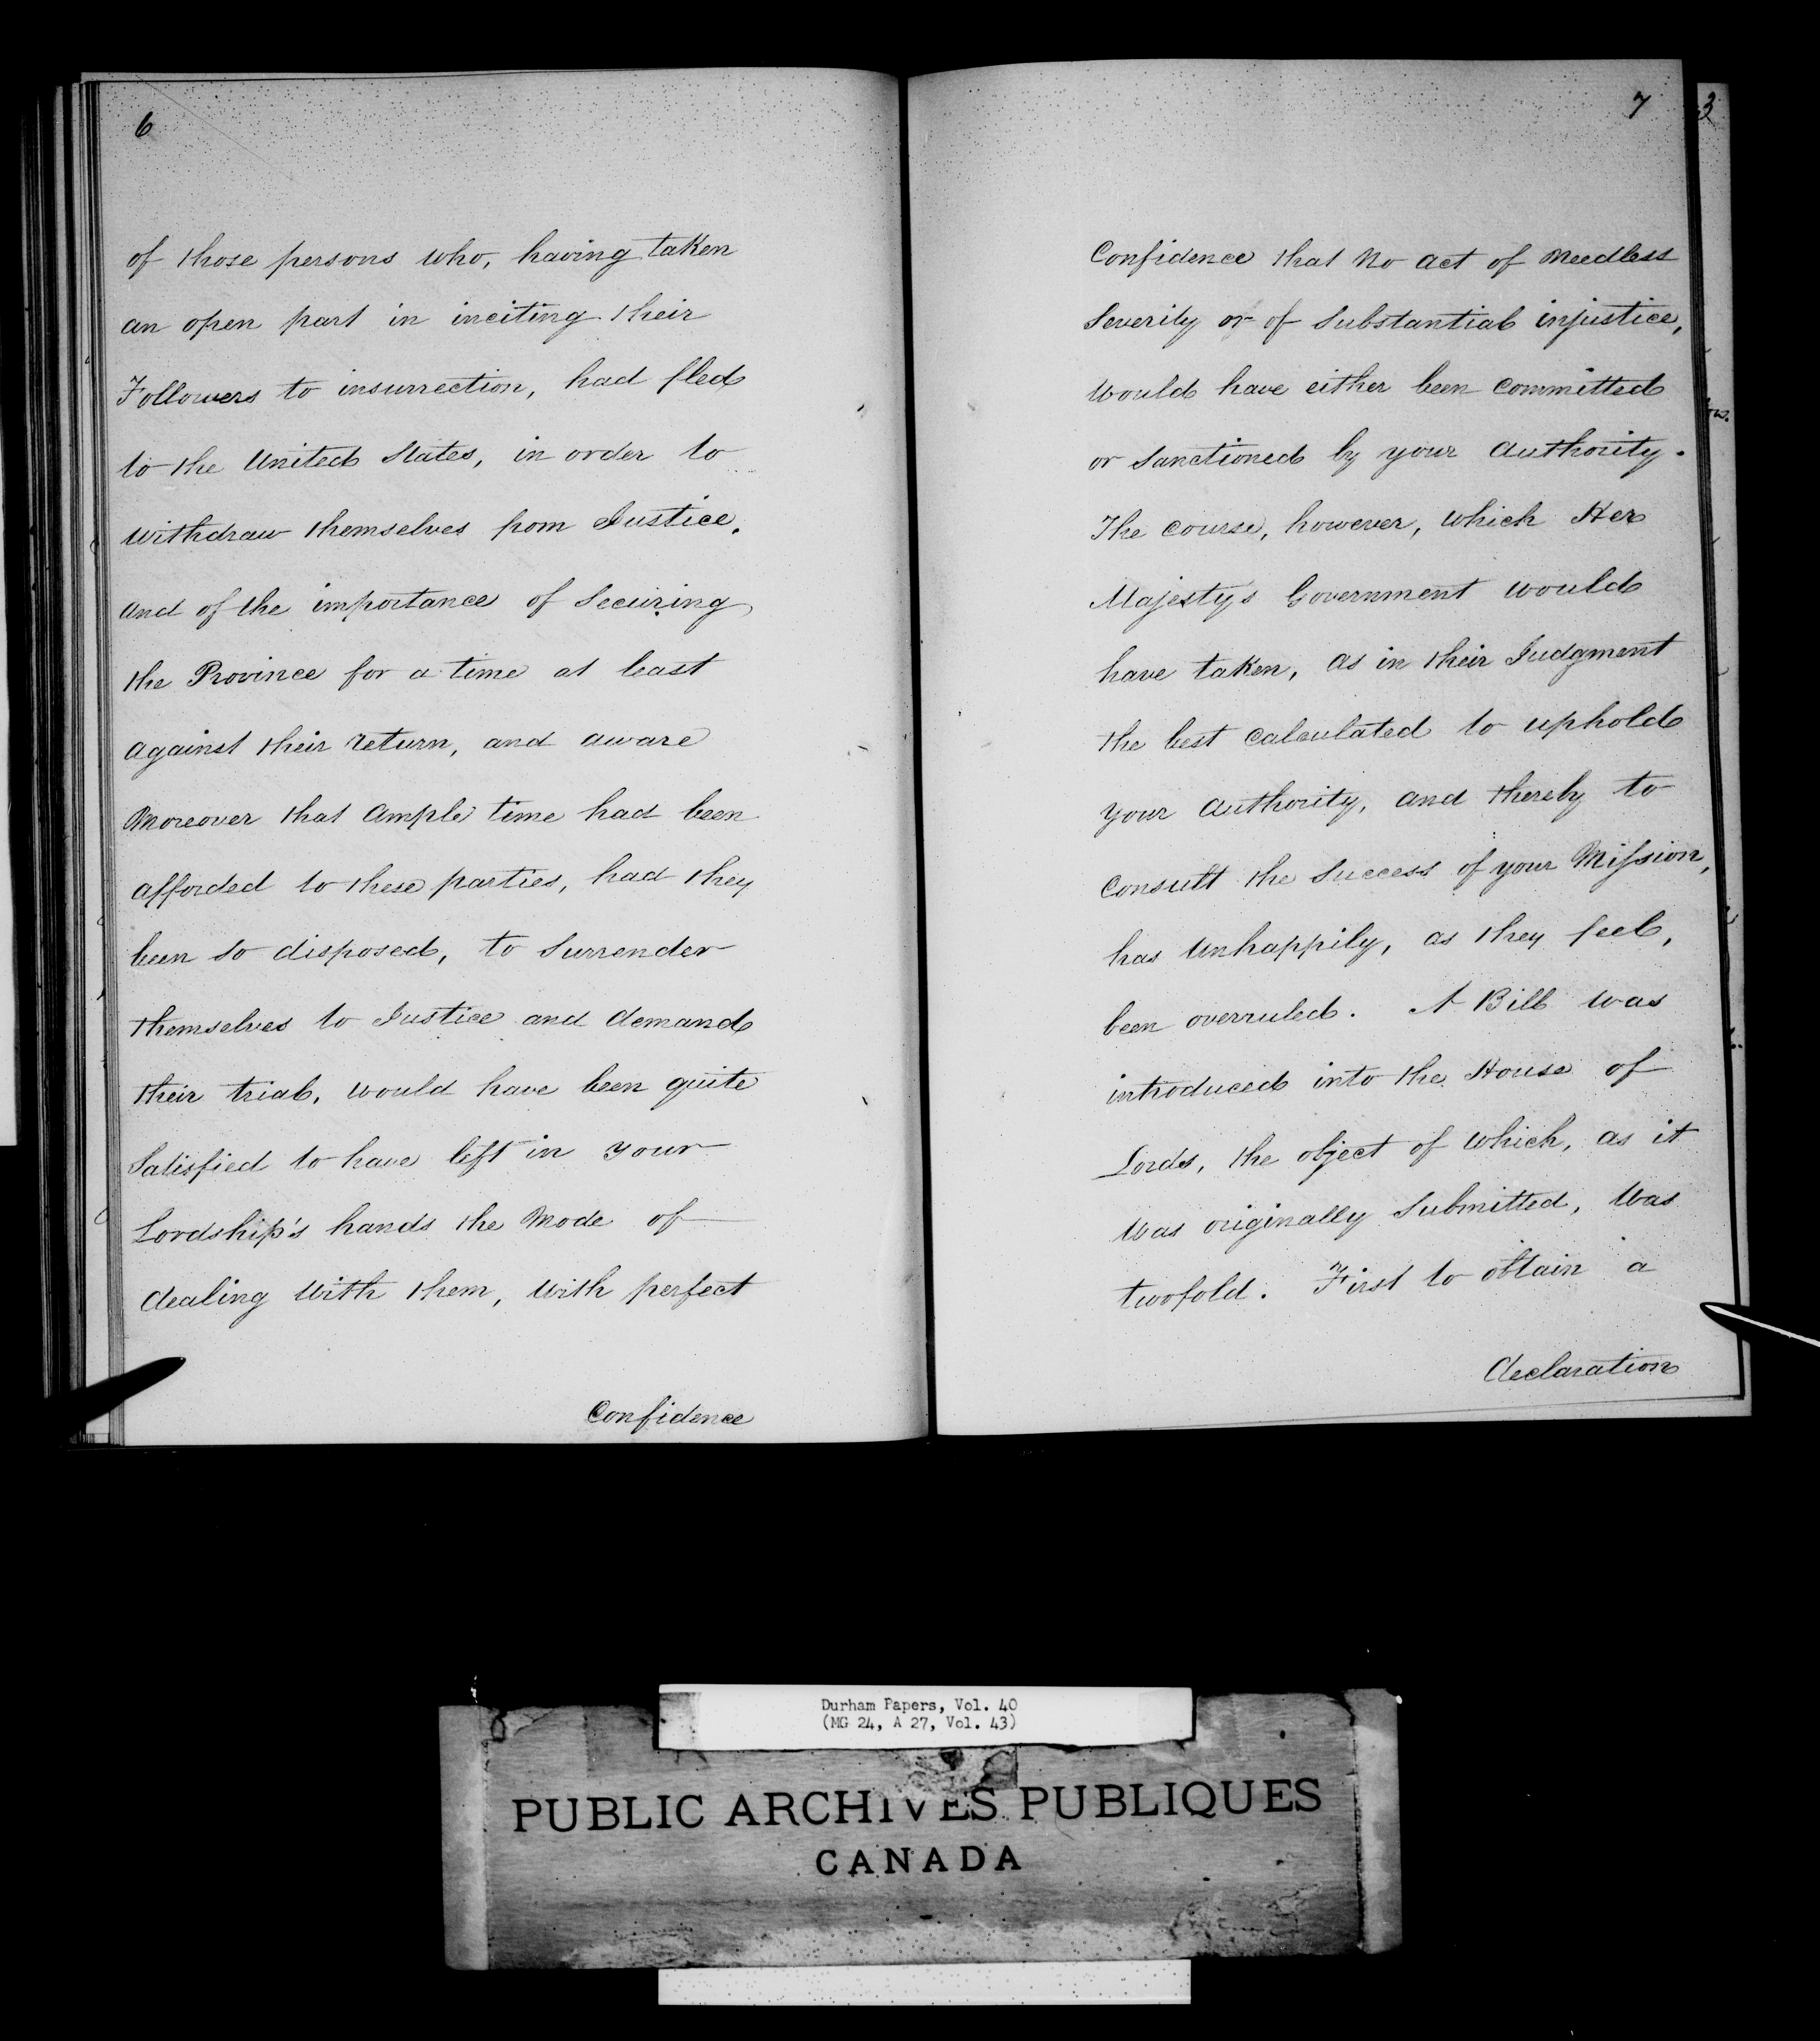 6
of those persons who, having taken
an open part in inciting their
Followers to insurrection, had fled
to the United States, in order to
withdraw themselves from Justice,
and of the importance of Securing
the Province for a time at least
against their return, and aware
Moreover that Ample time had been
afforded to these parties, had they
been so disposed, to Surrender
themselves to Justice and demand
their trial, would have been quite
Satisfied to have left in your
Lordship's hands the Mode of
dealing With them, With perfect
Confidence
7
Confidence that No act of Needless
Severity or of Substantial injustice,
Would have either been Committed
or Sanctioned by your Authority.
The course, however, which Her
Majesty's Government would
have taken, as in their Judgment
the best Calculated to uphold
your Authority, and thereby to
Consult the Success of your Mission,
has Unhappily, as they feel,
been overruled. A Bill was
introduced into the House of
Lords, the object of Which, as it
Was originally Submitted, Was
twofold. First to obtain a
declaration
3
Durham Papers, Vol. 40
(MG 24, A 27, Vol. 43)
PUBLIC ARCHIVES PUBLIQUES
CANADA